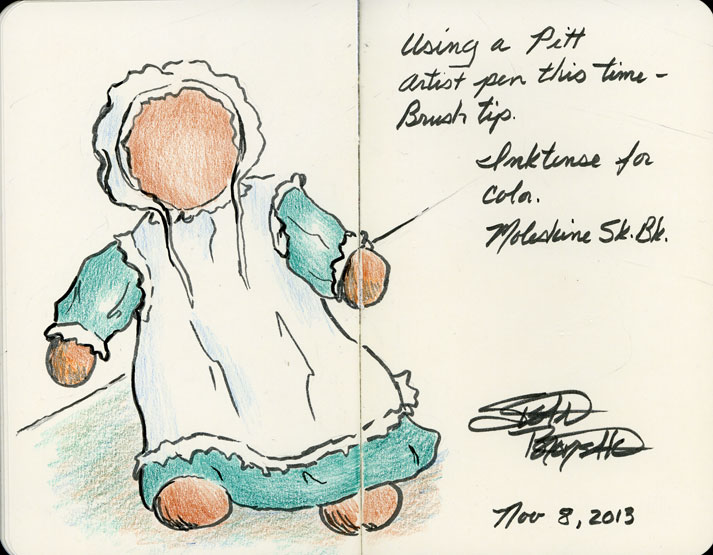 Using a Pitt
artist pen this time -
Brush tip.
Inktense for
color.
Moleskine Sk. Bk.
Nov 8, 2013